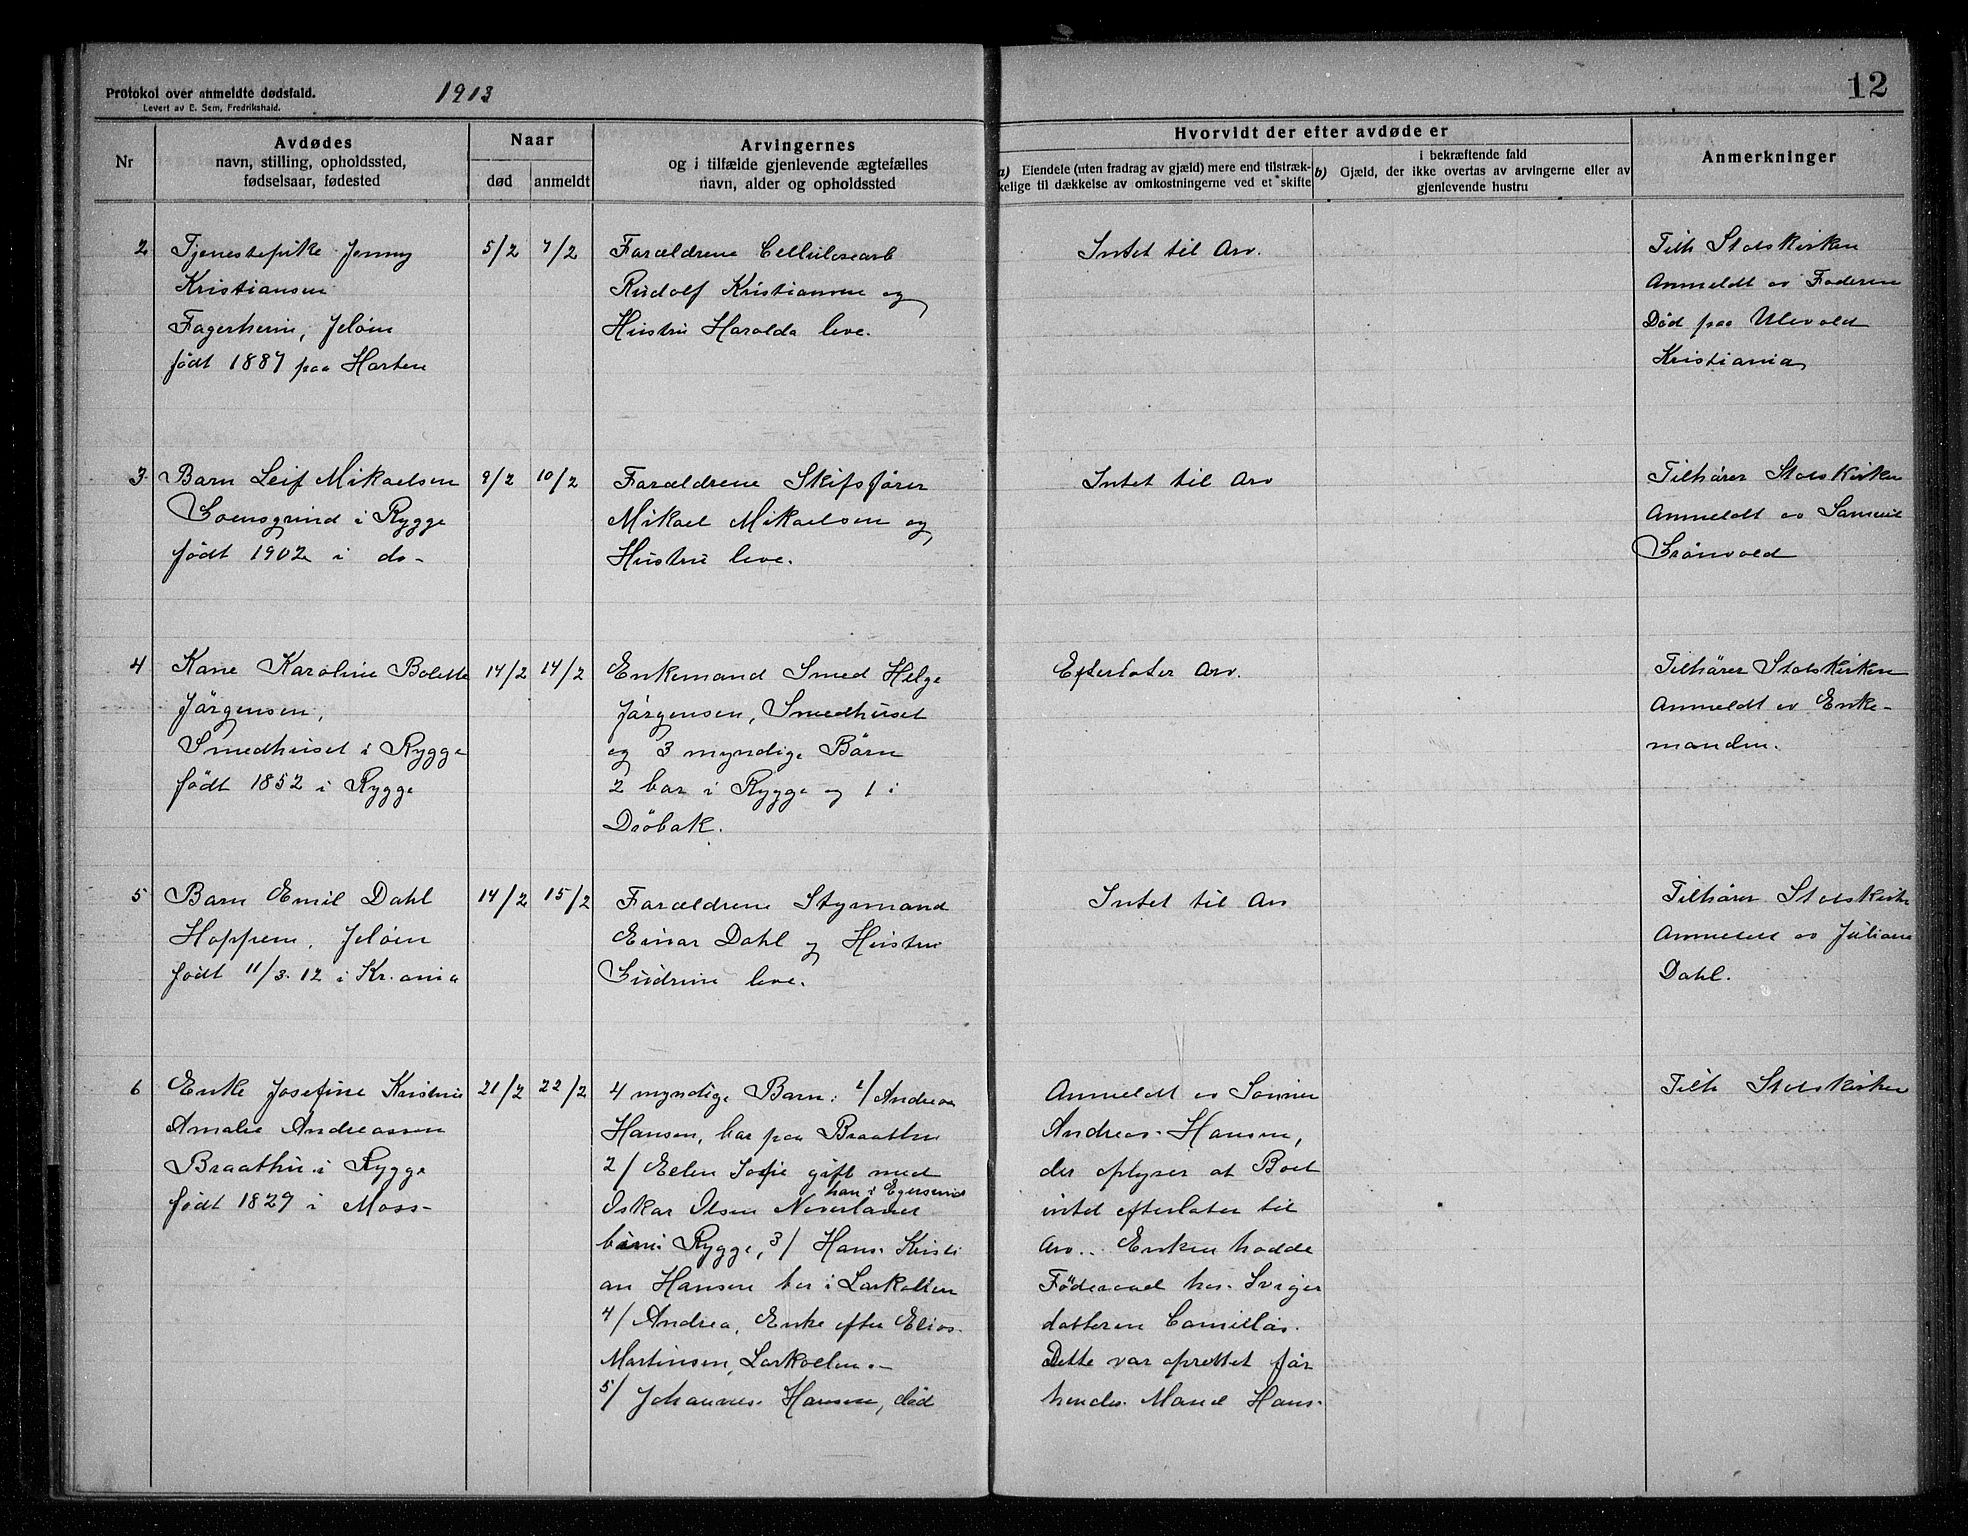 Protokol over anmeldte dødsfald.
Levert av E. Sem, Fredrikshald.
1913
12
Nr
Avdødes
navn, stilling, opholdssted,
fødselsaar, fødested
Naar
død
anmeldt
Arvingernes
og i tilfælde gjenlevende ægtefælles
navn, alder og opholdssted
Hvorvidt der efter avdøde er
a) Eiendele (uten fradrag av gjæld) mere end tilstræk-
kelige til dækkelse av omkostningerne ved et skifte
i bekræftende fald
b) Gjæld, der ikke overtas av arvingerne eller av
gjenlevende hustru
Anmerkninger
2
Tjenestepike Jenny
Kristiansen
Fagerheim, Jeløen
født 1887 paa Horten
5/2 7/2
Forældrene Cellulosearb
Rudolf Kristiansen og
Hustru Harolda leve.
Intet til Arv.
Tilh Statskirken
Anmeldt av Faderen
Død paa Ulevold
Kristiania
3.
Barn Leif Mikaelsen
Goensgrind i Rygge
født 1902 i do-
9/2 10/2
Forældrene Skifsfører
Mikael Mikaelsen og
Hustru leve.
Intet til Arv
Tilhører Statskirken
Anmeldt av Samuel
Grönvold
4
Kone Karoline Bolette
Jörgensen,
Smedhuset i Rygge
født 1852 i Rygge
14/2 14/2
Enkemand Smed Helge
Jörgensen, Smedhuset
og 3 myndige Börn
2 bor i Rygge og 1 i
Dröbak.
Efterlater Arv.
Tilhører Statskirken
Anmeldt av Enke-
manden.
5
Barn Emil Dahl
Hoppern, Jeløen
født 11/3.12 i Kr.ania
14/2 15/2
Forældrene Styrmand
Einar Dahl og Hustru
Gudrun leve.
Intet til Arv
Tilhører Statskirk
Anmeldt av Juliane
Dahl.
6
Enke Josefine Kristine
Amalie Andreassen
Braathen i Rygge
født 1829 i Moss-
21/2 22/2
4 myndige Barn: 1/ Andreas
Hansen, bor paa Braathen
2/ Ellen Sofie gift med
han i Egersund
Oskar Olsen
Rygge, 3/ Hans Kristi
an Hansen bor i Larkollen
4/ Andrea, Enke efter Elias
Martinsen, Larkollen.-
5/ Johannes Hansen, død
Anmeldt av Sønnen
Andreas Hansen,
der oplyser at Boet
intet efterlater til
Arv.. Enken hadde
Föderaad hos Sviger
datteren Camilla.
Dette var oprettet før
hendes Mand Hans
Tilh Statskirken